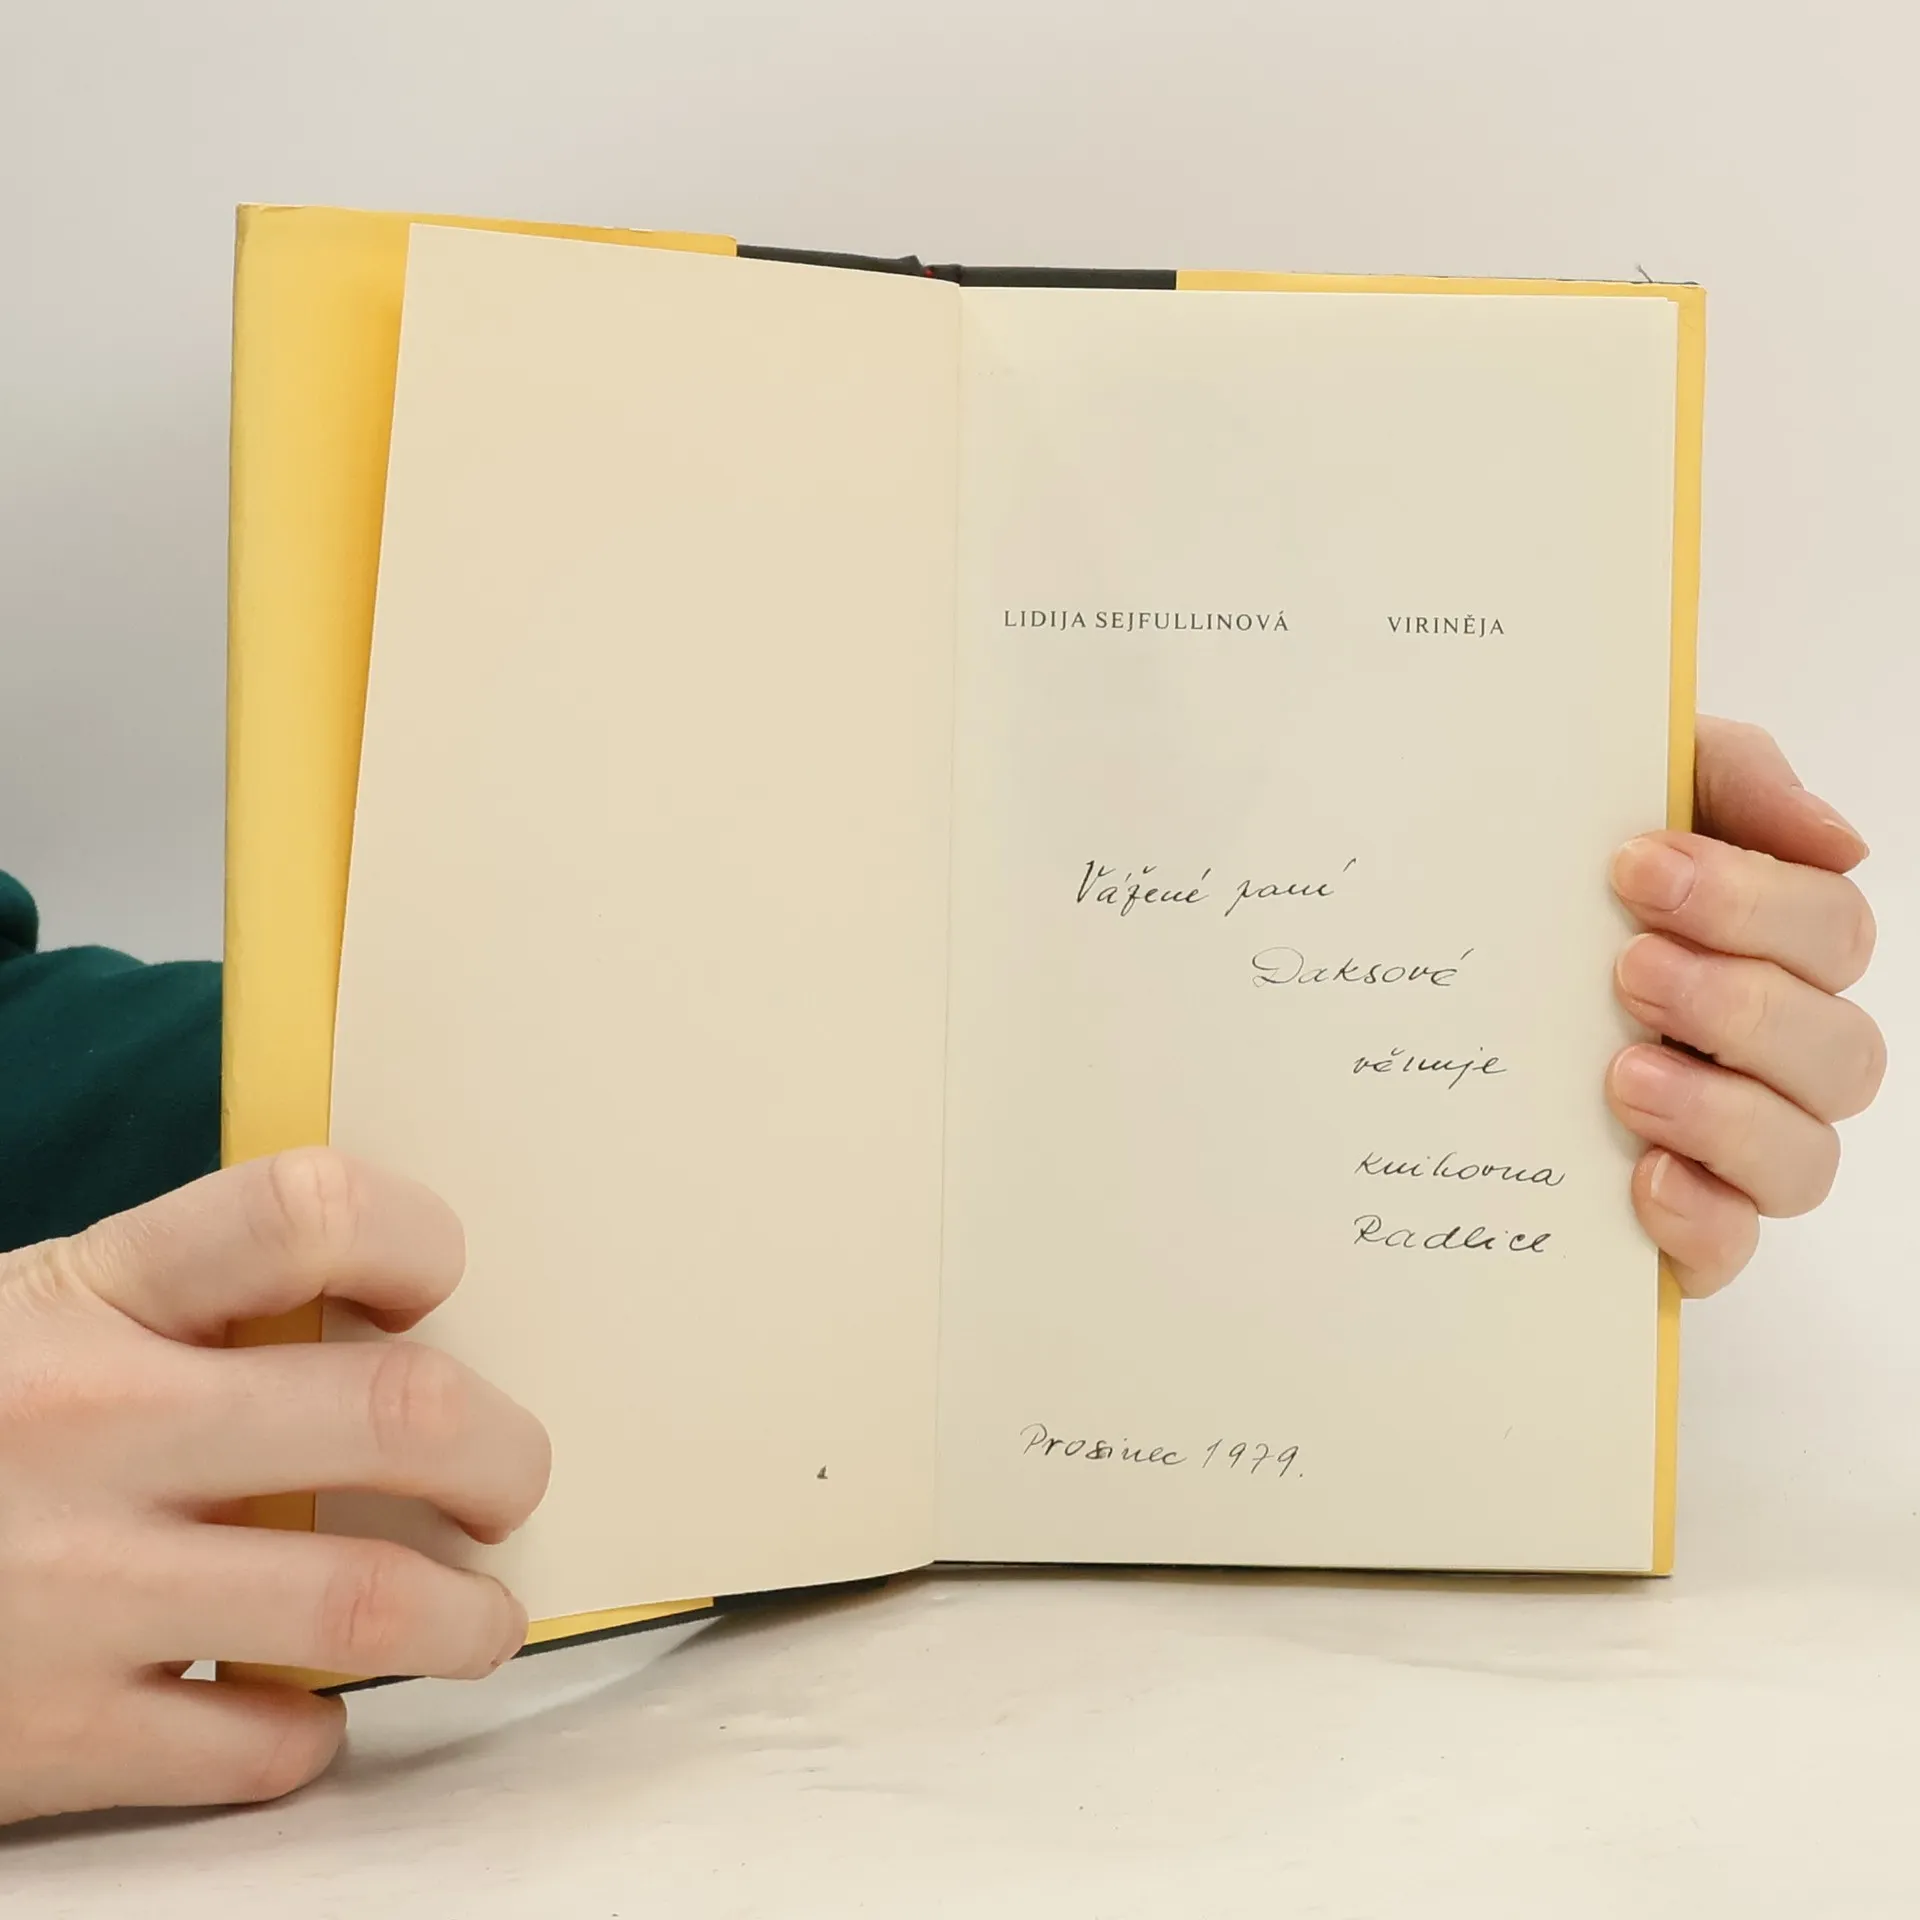 LIDIJA SEJFULLINOVÁ VIRINĚJA
Vážené paní
Daksové
věnuje
knihovna
Radlice
Prosinec 1979.